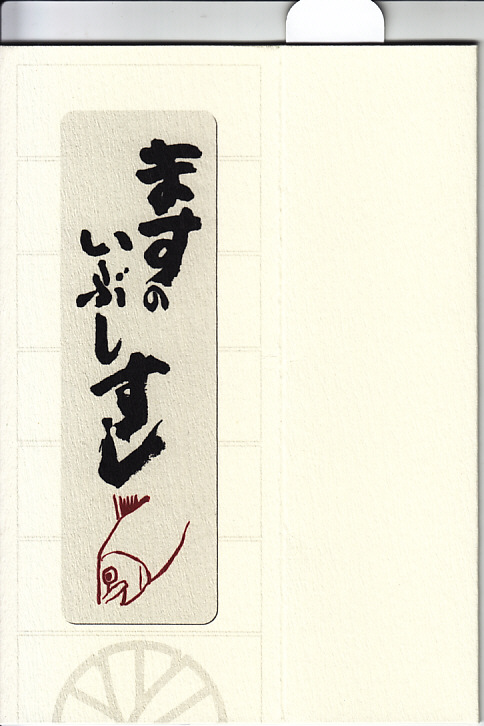 ますの
いぶし
すし